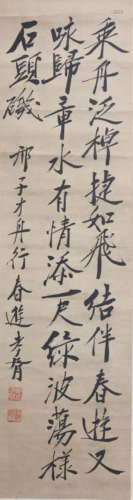 乘舟泛棹捷如飛結伴春遊又
咏歸章水有情添一尺綠波蕩漾
石頭磯
邢子才舟行春遊孝胥